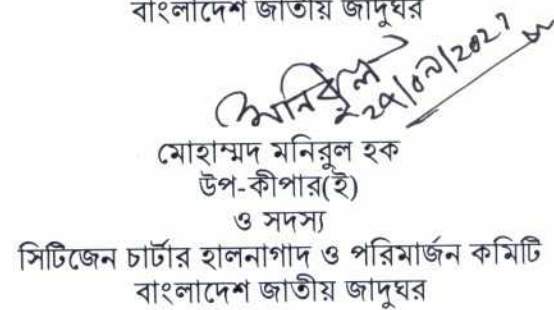 বাংলাদেশ জাতীয় জাদুঘর
মনিরুল
মোহাম্মদ মনিরুল হক
উপ-কীপার(ই)
ও সদস্য
সিটিজেন চার্টার হালনাগাদ ও পরিমার্জন কমিটি
বাংলাদেশ জাতীয় জাদুঘর